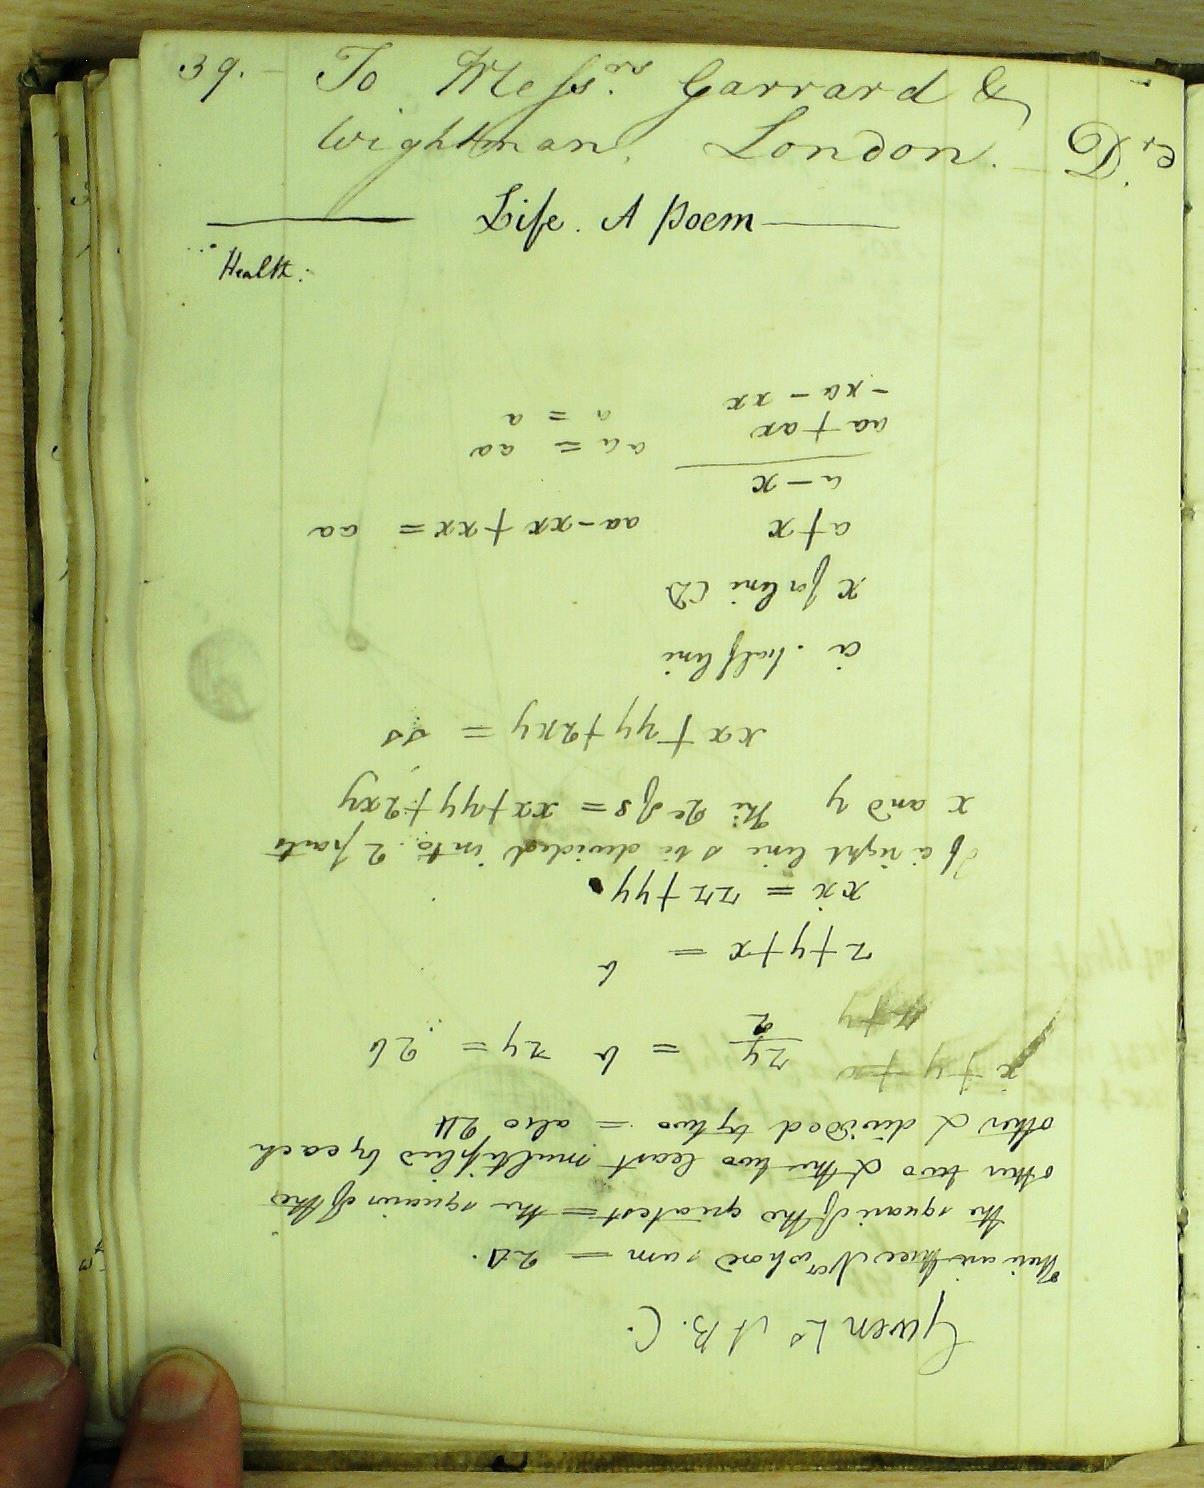 39. To Mess.rs Garrard &
Wightman, London. Dr. Cr
Life. A Poem
Health:
Given Ls A B. C.
There are three Nos whose sum = 24.
the square of the greatest = the squares of the
other two & the two least multiplied by each
other & divided by two = also 24
x + y + x zy/2 = b zy = 2b
z + y + x = b
xx = zz + yy
If a right line s be divided into 2 parts
x and y The 2e of s = xx + yy + 2xy
xx + yy + 2xy = ss
a. half line
x for line CD
a + x aa - xx + xx = aa
a - x
aa + ax aa = aa
- xa - xx a = a